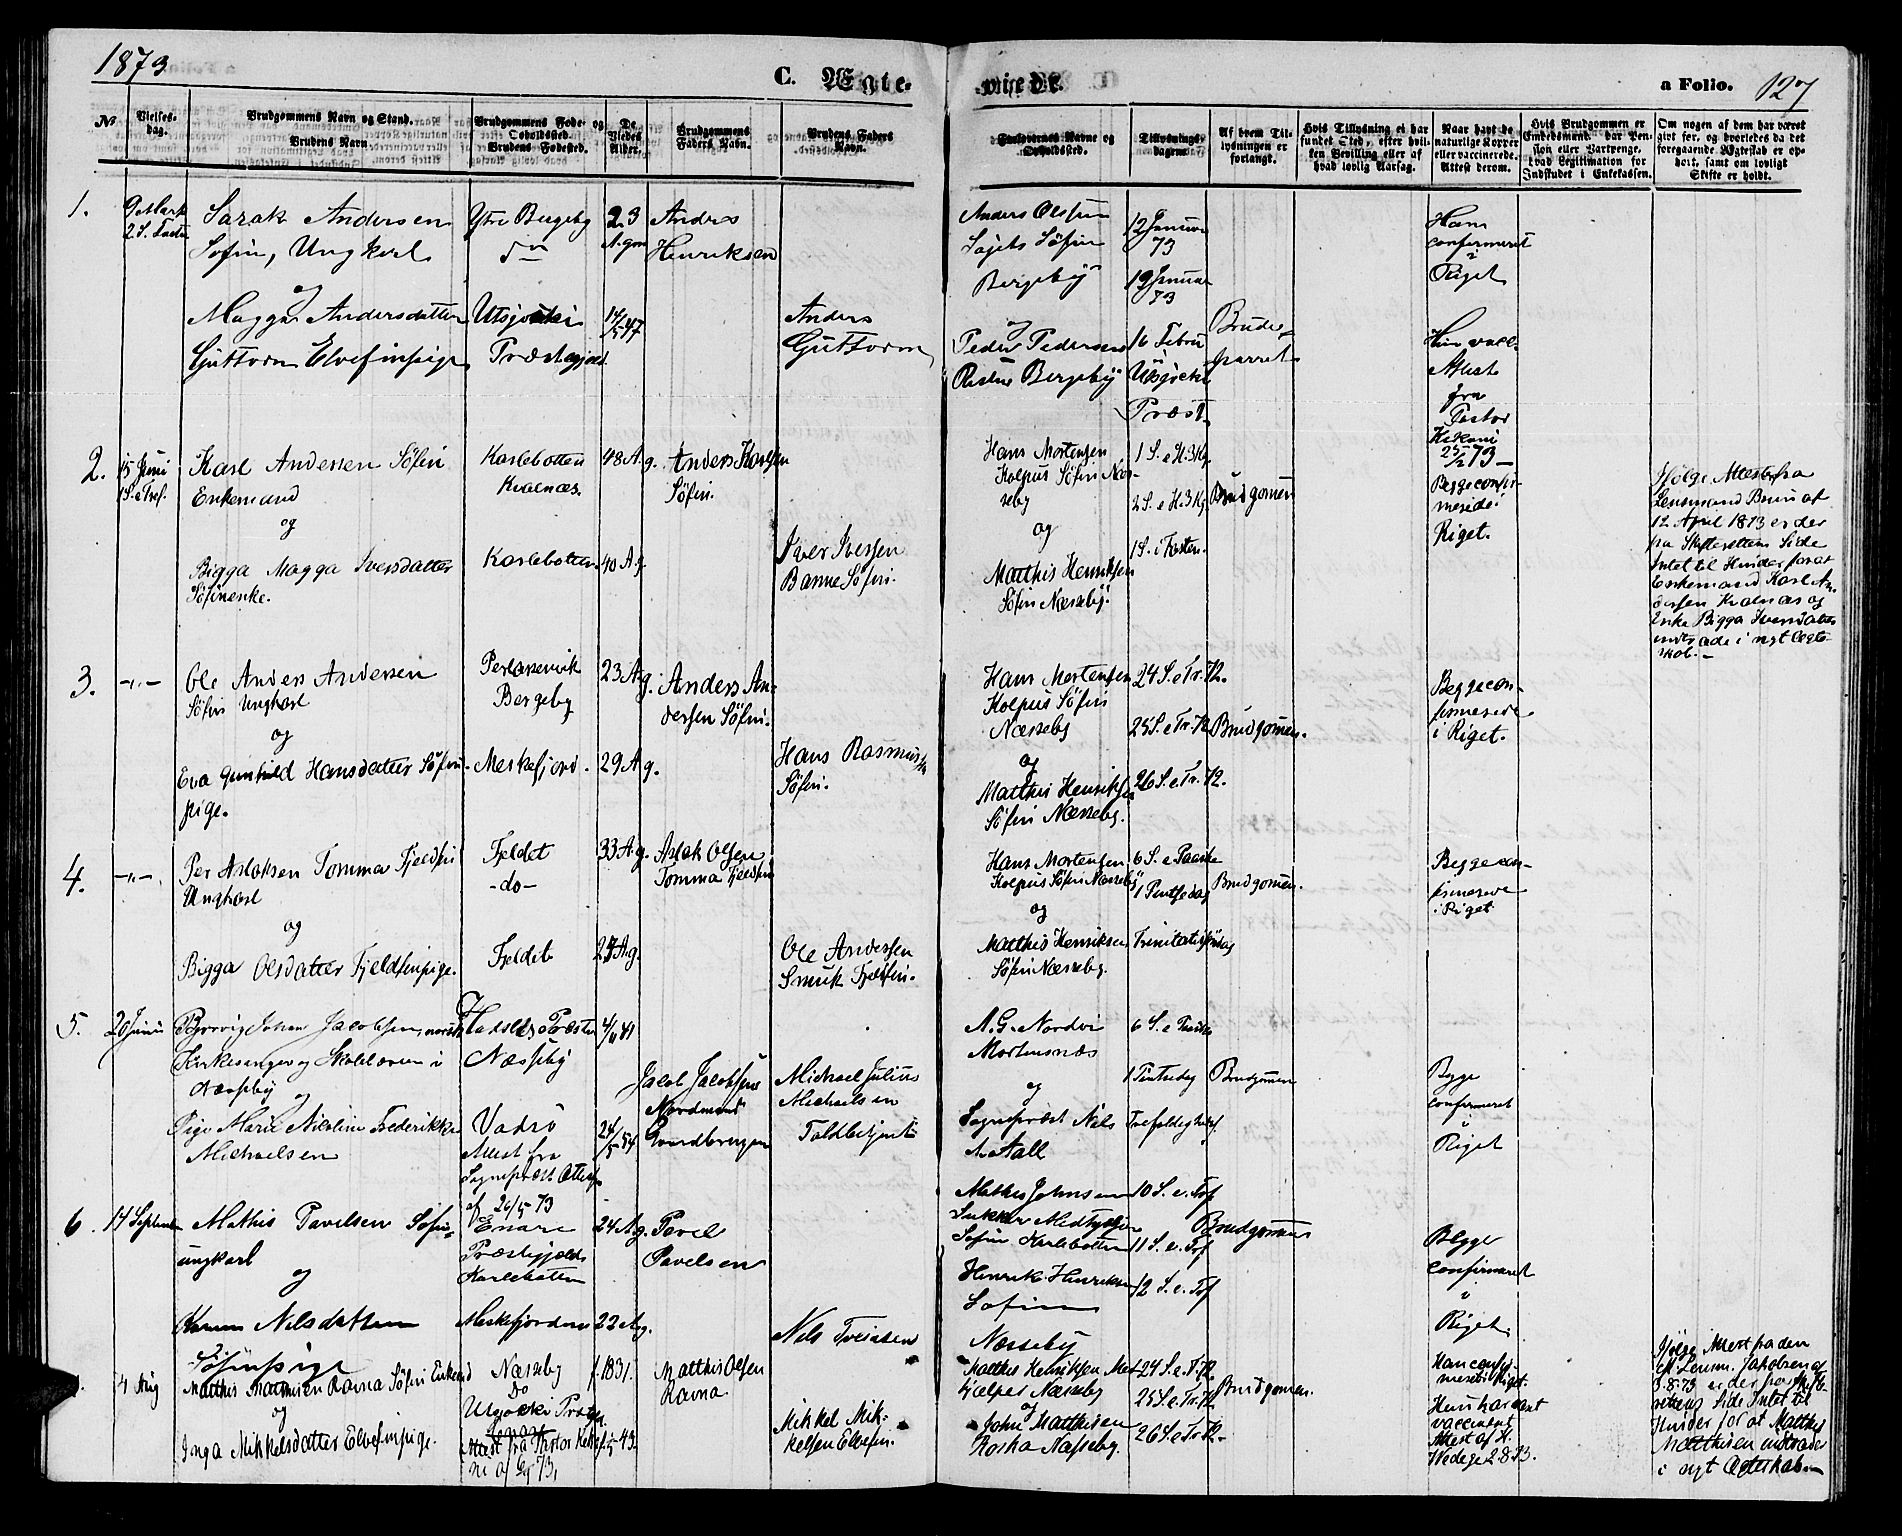 1873.
C. Ægte-
viede.
a Folio. 127
No
Vielses-
dag.
Brudgommens Navn og Stand.
Brudens Navn.
Brudgommens Føde- og
Opholdssted.
Brudens Fødested.
De
Viedes
Alder.
Brudgommens
Faders Navn.
Brudens Faders
Navn.
Forlovernes Navne og
Opholdssted.
Tillysnings-
dagene.
Af hvem Til-
lysningen er
forlangt.
Hvis Tillysning ei har
fundet Sted, efter hvil-
ken Bevilling eller af
hvad lovlig Aarsag.
Naar havt de
naturlige Kopper
eller vaccinerede.
Attest derom.
Hvis Brudgommen er
Embedsmand, har Pen-
sion eller Vartpenge,
hvad Legitimation for
Indskudet i Enkekassen.
Om nogen af dem har været
gift før, og hvorledes da det
foregaaende Ægteskab er op-
hørt, samt om lovligt
Skifte er holdt.
1.
9 Marts
2 S. Faste
Sarak Andersen
Søfin, Ungkarl
og
Magga Andersdatter
Guttorm Elvefinpige
Ytre Bergeby
Utsjoki
Præstegjeld
23
A. gm
14/5 47
Anders
Henriksen
Anders
Guttorm
Anders Olsen
Sajets Søfin
Bergeby
og
Peder Pedersen
Bergeby
12 Januar
73
19 Januar
73
16 Februar
Utsjoki
Præst.
Brude-
parret
Ham
confirmeret
i
Riget
Hun vacc.
Attest
fra
Pastor
25/2 73
2.
15 Juni
1 S. e Tref.
Karl Andersen Søfin
Enkemand
og
Bigga Magga Iversdatter
Søfinenke.
Karlebotten
Kvalnæs.
Karlebotten
48 A. g.
40 A. g.
Anders Karlsen
Søfin.
Iver Iversen
Banne Søfin.
Hans Mortensen
Kolpus Søfin Næs-
seby
og
Matthis Henriksen
Søfin Næsseby.
1 S. e H. 3 Kg.
2 S. e H. 3 Kg.
1 S. i Fasten.
Brudgomen
Begge confir-
merede i
Riget.
Ifølge Attest fra
Lensmand Brun af
12 April 1873 er der
fra Skifterettens Side
Intet til Hinder for at
Enkemand Karl An-
dersen Kvalnæs og
Enke Bigga Iversdatter
indtræde i nyt Ægte-
skab.-
3.
-"-
Ole Anders Andersen
Søfin Ungkarl
og
Eva Gunhild Hansdatter Søfin-
pige.
Perlasenvik
Bergeby
Meskefjord.
23 A. g.
29 A. g.
Anders An-
dersen Søfin.
Hans Rasmussen
Søfin.
Hans Mortensen
Kolpus Søfin
Næsseby
og
Matthis Henriksen
Søfin Næsseby.
24 S. e Tr. 72.
25 S. e Tr. 72
26 S. e Tr. 72.
Brudgomen.
Begge con-
firmerede
i Riget.
4.
-"-
Per Aslaksen Tomma Fjeldfin
Ungkarl
og
Bigga Olsdatter Fjeldfinpige.
Fjeldet
-do-
Fjeldet
33 A. g.
27 A. g.
Aslak Olsen
Tomma Fjeldfin
Ole Andersen
Smuk Fjeldfin.
Hans Mortensen
Kolpus Søfin Næsseby
og
Matthis Henriksen
Søfin Næsseby.
6 S. e Paaske
1 Pintsedag
Trinitatissøndag
Brudgomen.
Begge con-
firmerede
i Riget.
5.
20 Juni
Johan Jacobsen, norsk
Kirkesanger og Skolelærer i
Næsseby
og
Pige Marie Nicoline Frederikke
Michaelsen
Hadsel Præstegj
Næsseby
Vadsø
Attest fra
Sognepræst
af 26/5 73
4/11 41
24/5 54
Jacob Jacobsen
Nordmand
Gaardbruger
Michael Julius
Michaelsen
Toldbetjent
A. G. Nordvi
Mortensnæs
og
Sognepræst Nils
A. Aall
6 S. e Paaske
1 Pintsedag
Trefoldighedsf.
Brudgomen
Begge
confirmeret
i
Riget
6.
14 September
Mathis Pavelsen Søfin-
ungkarl
og
Karen Nilsdatter
Søfinpige
Enare
Præstegjeld
Karlebotten
Meskefjorden
24 A. g.
22 A. g.
Pavel
Pavelsen
Nils
Mathis Johnsen
Søfin Karlebotten
Henrik Henriksen
Søfin
Næsseby
10 S. e. Tref
11 S. e. Tref
12 S. e. Tref
Brudgomen
Begge
confirmeret
i
Riget
4 Aug
Matthis Matthisen Ravna Søfin Enkemd
og
Inga Mikkelsdatter Elvefinpige.
Næsseby
do
Utsjoki Præstgj.
Attest fra Pastor
f. 1831.
43.
Matthis Olsen
Ravna.
Mikkel Mik-
kelsen Elvefin.
Matthis Henriksen Med-
hjælper Næsseby
og
John Matthisen
Roska Næsseby.
24 S. e. Tr. 72.
25 S. e. Tr. 72.
26 S. e Tr. 72.
Brudgomen.
Han confir-
meret i Riget.
Hun har været
vaccineret
Attest af H.
Wedege 2.8.73.
Ifølge Attest fra den
cst. Lensm. Jakobsen af
3.8.73 er der fra Skifte-
rettens Side Intet til
Hinder for at Matthis
Matthisen indtræder
i nyt Ægteskab.-